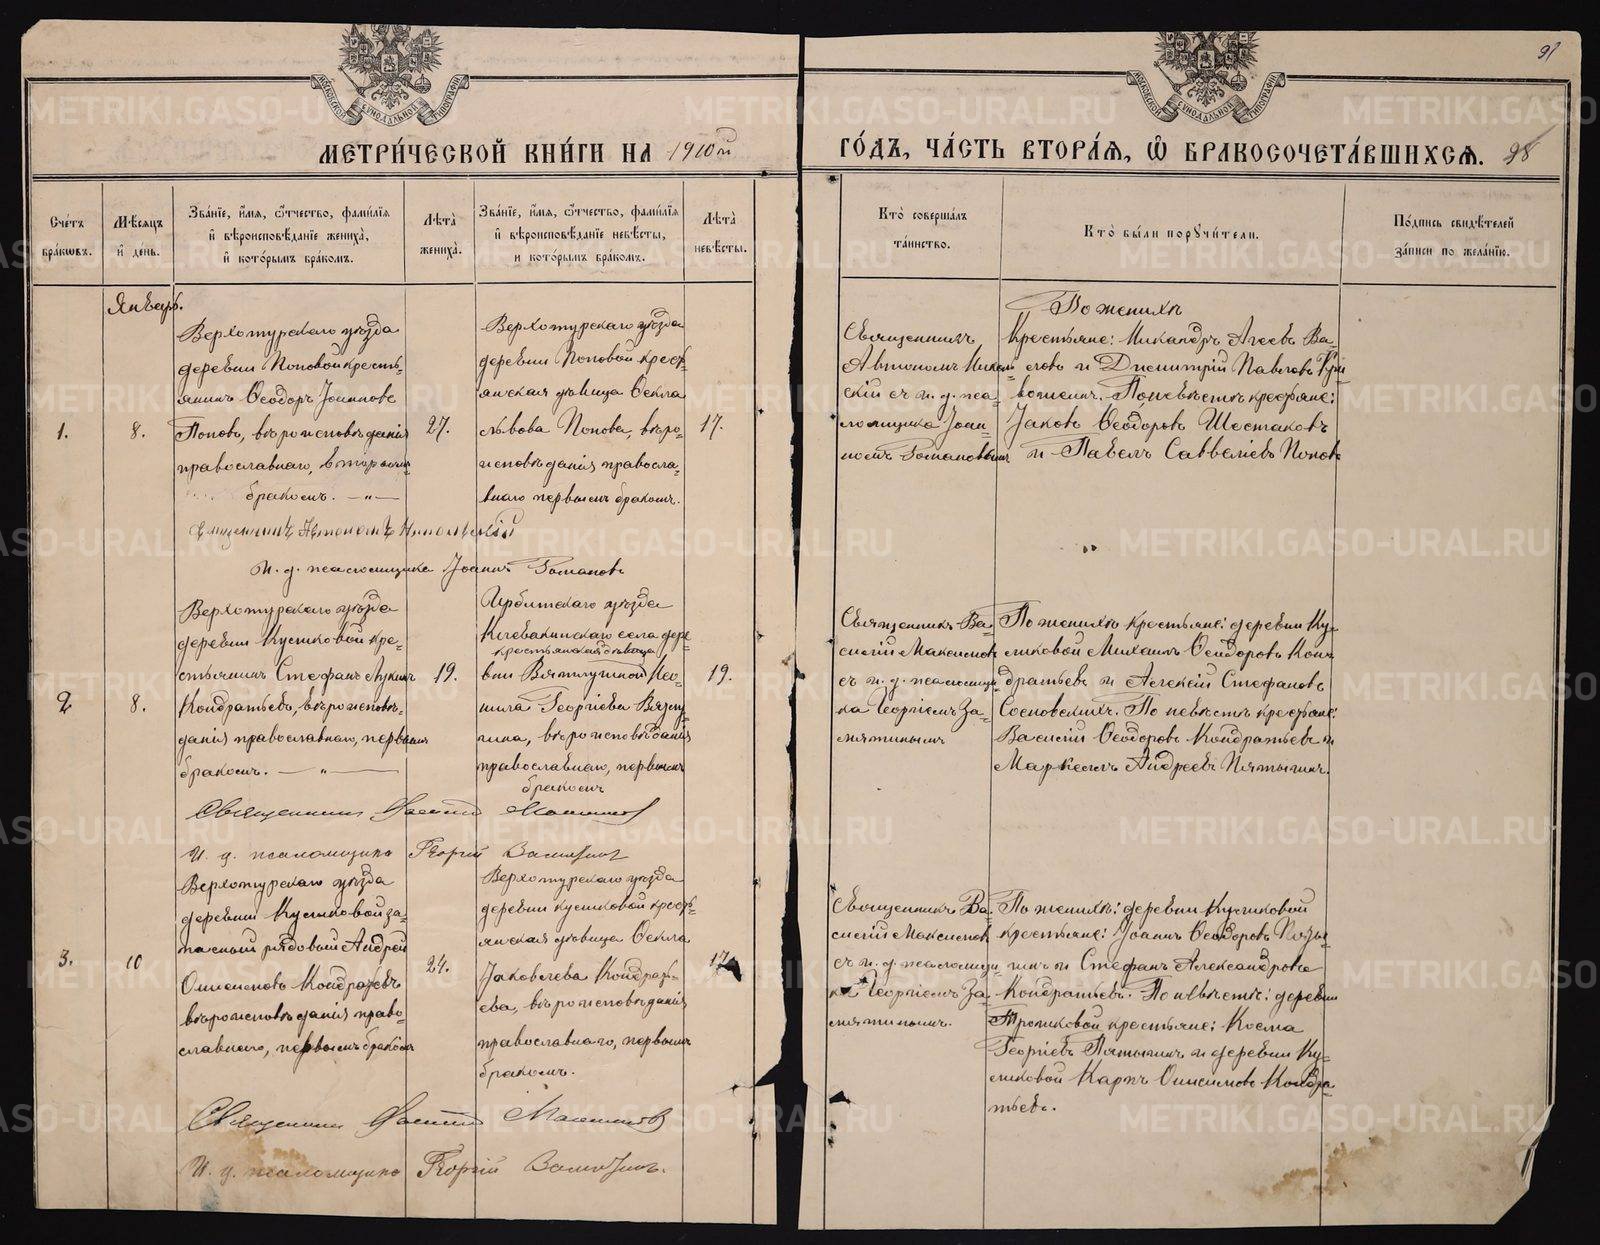 91
МЕТРИ́ЧЕСКОЙ КНИ́ГИ НА 1910й
ГО́ДЪ, ЧА́СТЬ ВТОРА́Я, Ѡ БРАКОСОЧЕТА́ВШИХСЯ. 98
Сче́тъ бра́кѡвъ.
Мѣ́сяцъ и́ де́нь.
Зва́нїе, и́мя, ѻ҆́тчество, фами́лїя и҆ вѣ́роисповѣ́данїе жениха̀, и҆ кото́рымъ бра́комъ.
Лѣ́та̀ жениха̀.
Зва́нїе, и́мя, ѻ҆́тчество, фами́лїя и҆ вѣ́роисповѣ́данїе невѣ́сты, и кото́рымъ бра́комъ.
Лѣ́та̀ невѣ́сты.
Кто̀ соверша́лъ та́инство.
Кто̀ бы́ли порꙋчи́тели.
По́дпись свидѣ́телей за́писи по жела́нїю.
Январь.
1.
8.
Верхотурскаго уѣзда
деревни Поповой кресть-
янинъ Ѳеодоръ Іоанновъ
Поповъ, вѣроисповѣданія
православнаго, вторымъ
бракомъ. —„—
27.
Верхотурскаго уѣзда
деревни Поповой крест-
янская дѣвица Ѳекла
Львова Попова, вѣро-
исповѣданія правосла-
внаго первымъ бракомъ.
17.
Священникъ
Автономъ
скій съ и. д. пса-
ломщика Іоан-
номъ
По женихѣ
Крестьяне: Никандръ Агеевъ
и Димитрій Павловъ
По невѣстѣ крестьяне:
Іаковъ Ѳеодоровъ Шестаковъ
и Павелъ Савеліевъ Поповъ
Священникъ Автономъ
И. д. псаломщика Іоаннъ
2
8.
Верхотурскаго уѣзда
деревни Куликовой кре-
стьянинъ Стефанъ Лукинъ
Кондратьевъ, вѣроисповѣ-
данія православнаго, первымъ
бракомъ. —„—
19.
Ирбитскаго уѣзда
села дере
крестьянская дѣвица
вни Вятчиной Нео-
нила Георгіева
вѣроисповѣданія
православнаго, первымъ
бракомъ
19.
Священникъ Ва-
силій Максимовъ
съ и. д. псаломщи-
ка Георгіемъ За-
мятинымъ
По женихѣ крестьяне: деревни Ку-
ликовой Михаилъ Ѳеодоровъ Кон-
дратьевъ и Алексій Стефановъ
Сосновскихъ. По невѣстѣ крестьяне:
Василій Ѳеодоровъ Кондратьевъ и
Маркеллъ Андреевъ Пятыгинъ.
Священникъ Василій Максимовъ
И. д. псаломщика Георгій Замятинъ
3.
10
Верхотурскаго уѣзда
деревни Куликовой за-
пасный рядовый Андрей
Онисимовъ Кондратьевъ
вѣроисповѣданія право-
славнаго, первымъ бракомъ
24.
Верхотурскаго уѣзда
деревни Куликовой крест-
янская дѣвица Ѳекла
Іаковлева Кондрать-
ева, вѣроисповѣданія
православнаго, первымъ
бракомъ.
17.
Священникъ Ва-
силій Максимовъ
съ и. д. псаломщи-
ка Георгіемъ За-
мятинымъ.
По женихѣ: деревни Куликовой
крестьяне: Іоаннъ Ѳеодоровъ
и Стефанъ Александровъ
Кондратьевъ. По невѣстѣ: деревни
крестьяне: Косма
Георгіевъ Пятыгинъ и деревни Ку-
ликовой Карпъ Онисимовъ Кондра-
тьевъ.
Священникъ Василій Максимовъ
И. д. псаломщика Георгій Замятинъ.
METRIKI.GASO-URAL.RU